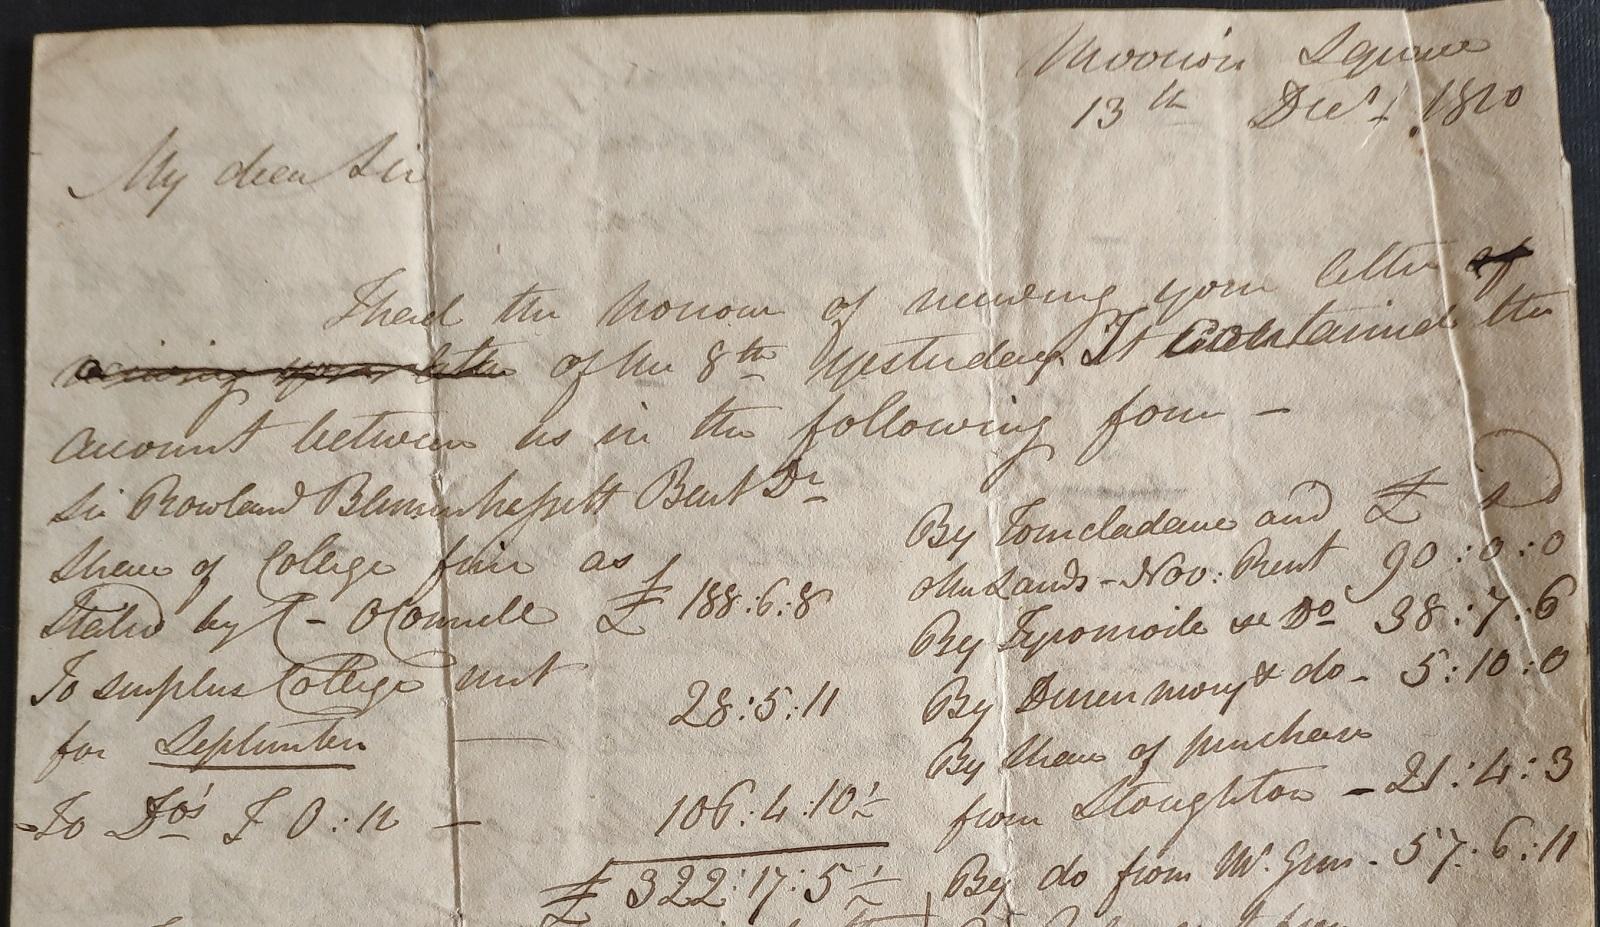 Merrion Square
13th Decr. 1810
My dear Sir
I had the honour of receiving your letter of
receiving your letter of the 8th yesterday It contained the
account between us in the following form -
Sir Rowland Blennerhassett Bart Dr
Share of College fine as
Stated by - O Connell £ 188:6:8
To surplus College rent
for September 28:5:11
To Do 106:4:10½
£ 322:17:5½
By and £ s d
other Lands - Nov: Rent 90:0:0
By Do 38:7:6
By do - 5:10:0
By Share of purchase
from Stoughton - 21:4:3
By do from Mr. Gun - 57:6:11